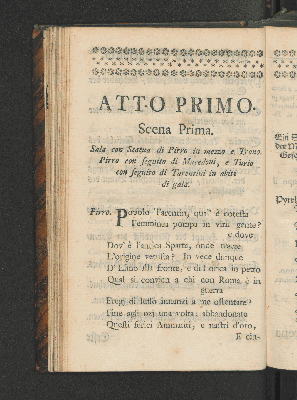 ATTO PRIMO.
Scena Prima.
Sala con Statua di Pirro in mezzo e Trono.
Pirro con seguito di Macedoni, e Turio
con seguito di Tarentini in abito
di gala.
Pirro. Popolo Tarentin, qual' è cotesta
Femminea pompa in viril gente?
e dove
Dov' è l'antica Sparta, onde
L'origine vetusta? In vece dunque
D' Elmo alla fronte, e di lorica in petto
Qual si convien a chi con Roma è in
guerra
Fregi di lusso innanzi a me ostentate?
Fine agli ozj una volta: abbandonate
Questi serici Ammanti, e nastri d'oro,
E cin-